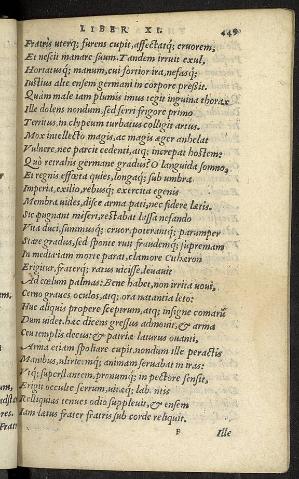 LIBER XI. 449
Fratris uterq; furens cupit, affectatq; cruorem,
Et nescit manare suum. Tandem irruit exul,
Hortatusq; manum, cui fortior ira, nefasq;
Iustius alte ensem germani in corpore pressit.
Quàm male iam plumis imus tegit inguina thorax
Ille dolens nondum, sed ferri frigore primo
Territus, in clypeum turbatus colligit artus.
Mox intellecto magis, ac magis æger anhelat
Vulnere, nec parcit cedenti, atq; increpat hostem:
Quò retrahis germane gradus? O languida somno,
Et regnis effœta quies, longaq; sub umbra
Imperia, exilio, rebusq; exercita egenis
Membra uides, disce arma pati, nec fidere lætis.
Sic pugnant miseri, restabat lassa nefando
Vita duci, summusq; cruor, poterantq; parumper
Stare gradus, sed sponte ruit fraudemq; supremam
In media iam morte parat, clamore Cithæron
Erigitur, fraterq; ratus uicisse, leuauit
Ad cœlum palmas: Bene habet, non irrita uoui,
Cerno graues oculos, atq; ora natantia leto:
Huc aliquis propere sceptrum, atq; insigne comarū
Dum uidet, hæc dicens gressus admouit, & arma
Ceu templis decus: & patriæ laturus ouanti,
Arma etiam spoliare cupit, nondum ille peractis
Manibus, ultricemq; animam seruabat in iras:
Vtq; superstantem, pronumq; in pectore sensit,
Erigit occulte ferrum, uitæq; lab ntis
Relliquias tenues odio suppleuit, & ensem
Iam lætus frater fratris sub corde reliquit.
F Ille